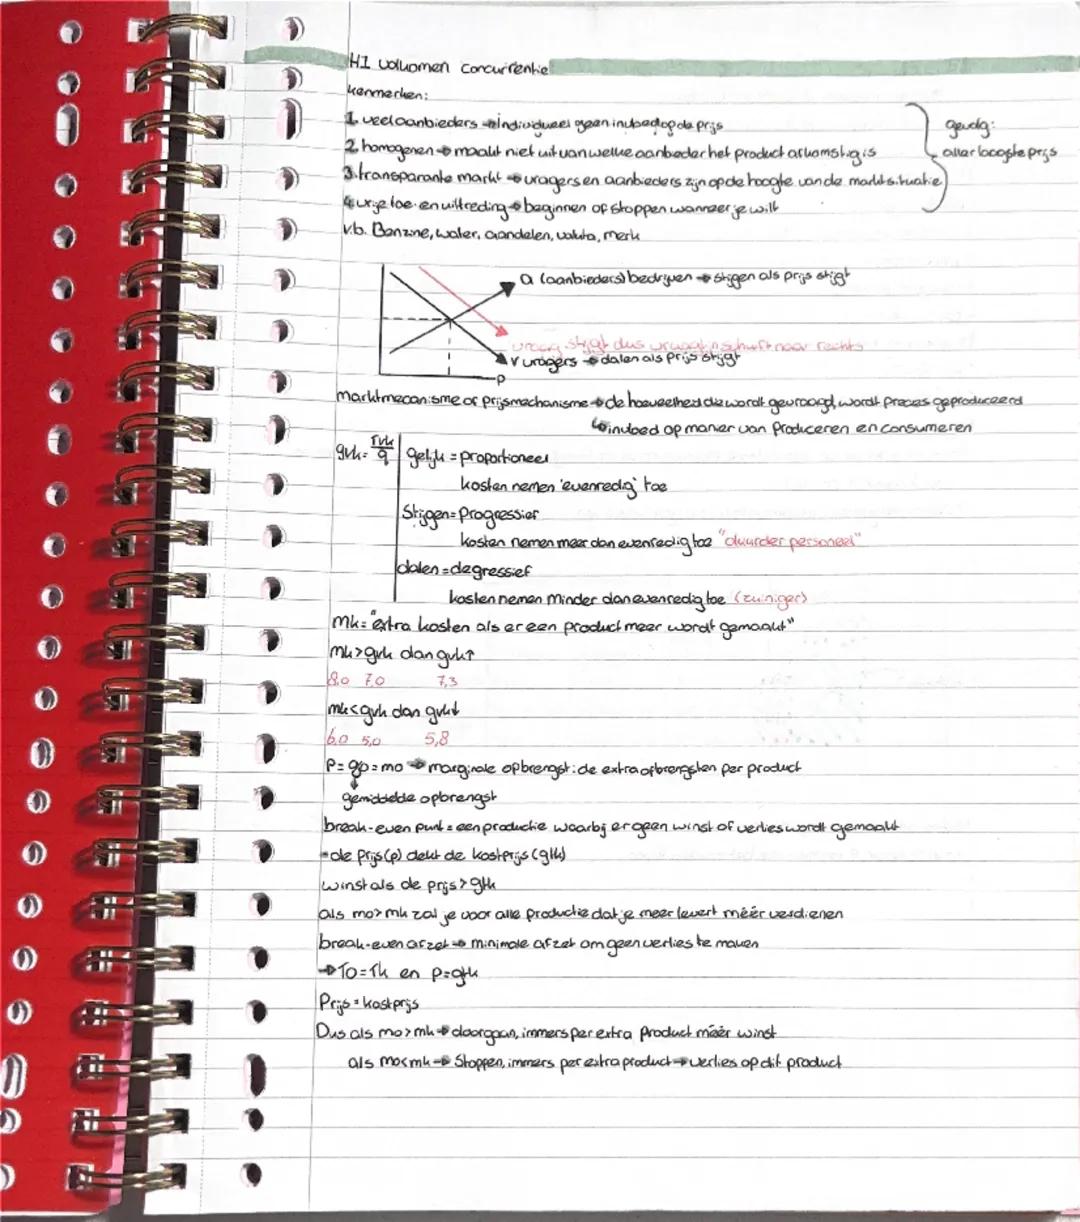 H1 volkomen concurrentie
kenmerken:
1. veel aanbieders → individueel geen invloed op de prijs
2. homogenen → maakt niet uit van welke aanbieder het product afkomstig is
3. transparante markt → vragers en aanbieders zijn op de hoogte van de marktsituatie
4. vrije toe- en uittreding → beginnen of stoppen wanneer je wilt
gevolg:
aller laagste prijs
v.b. Benzine, water, aandelen, valuta, merk
a (aanbieders) bedrijven → stijgen als prijs stijgt
vraag stijgt dus vraaglijn schuift naar rechts
v vragers → dalen als prijs stijgt
P
marktmecanisme of prijsmechanisme → de hoeveelheid die wordt gevraagd, wordt precies geproduceerd
↳ invloed op manier van Produceren en consumeren
gvk = TVK/q
gelijk = proportioneel
kosten nemen 'evenredig' toe
Stijgen = Progressief
kosten nemen meer dan evenredig toe "duurder personeel"
dalen = degressief
kosten nemen minder dan evenredig toe (zuiniger)
mk = "extra kosten als er een product meer wordt gemaakt"
mk > gvk dan gvk↑
8,0 7,0 7,3
mk < gvk dan gvk↓
6,0 5,0 5,8
P = go = mo → marginale opbrengst: de extra opbrengsten per product
↓
gemiddelde opbrengst
break-even punt = een productie waarbij er geen winst of verlies wordt gemaakt
- de prijs (p) dekt de kostprijs (gtk)
winst als de prijs > gtk
als mo > mk zal je voor alle productie dat je meer levert méér verdienen
break-even afzet → minimale afzet om geen verlies te maken
→ TO = TK en p = gtk
Prijs = kostprijs
Dus als mo > mk → doorgaan, immers per extra product méér winst
als mo < mk → Stoppen, immers per extra product → verlies op dit product